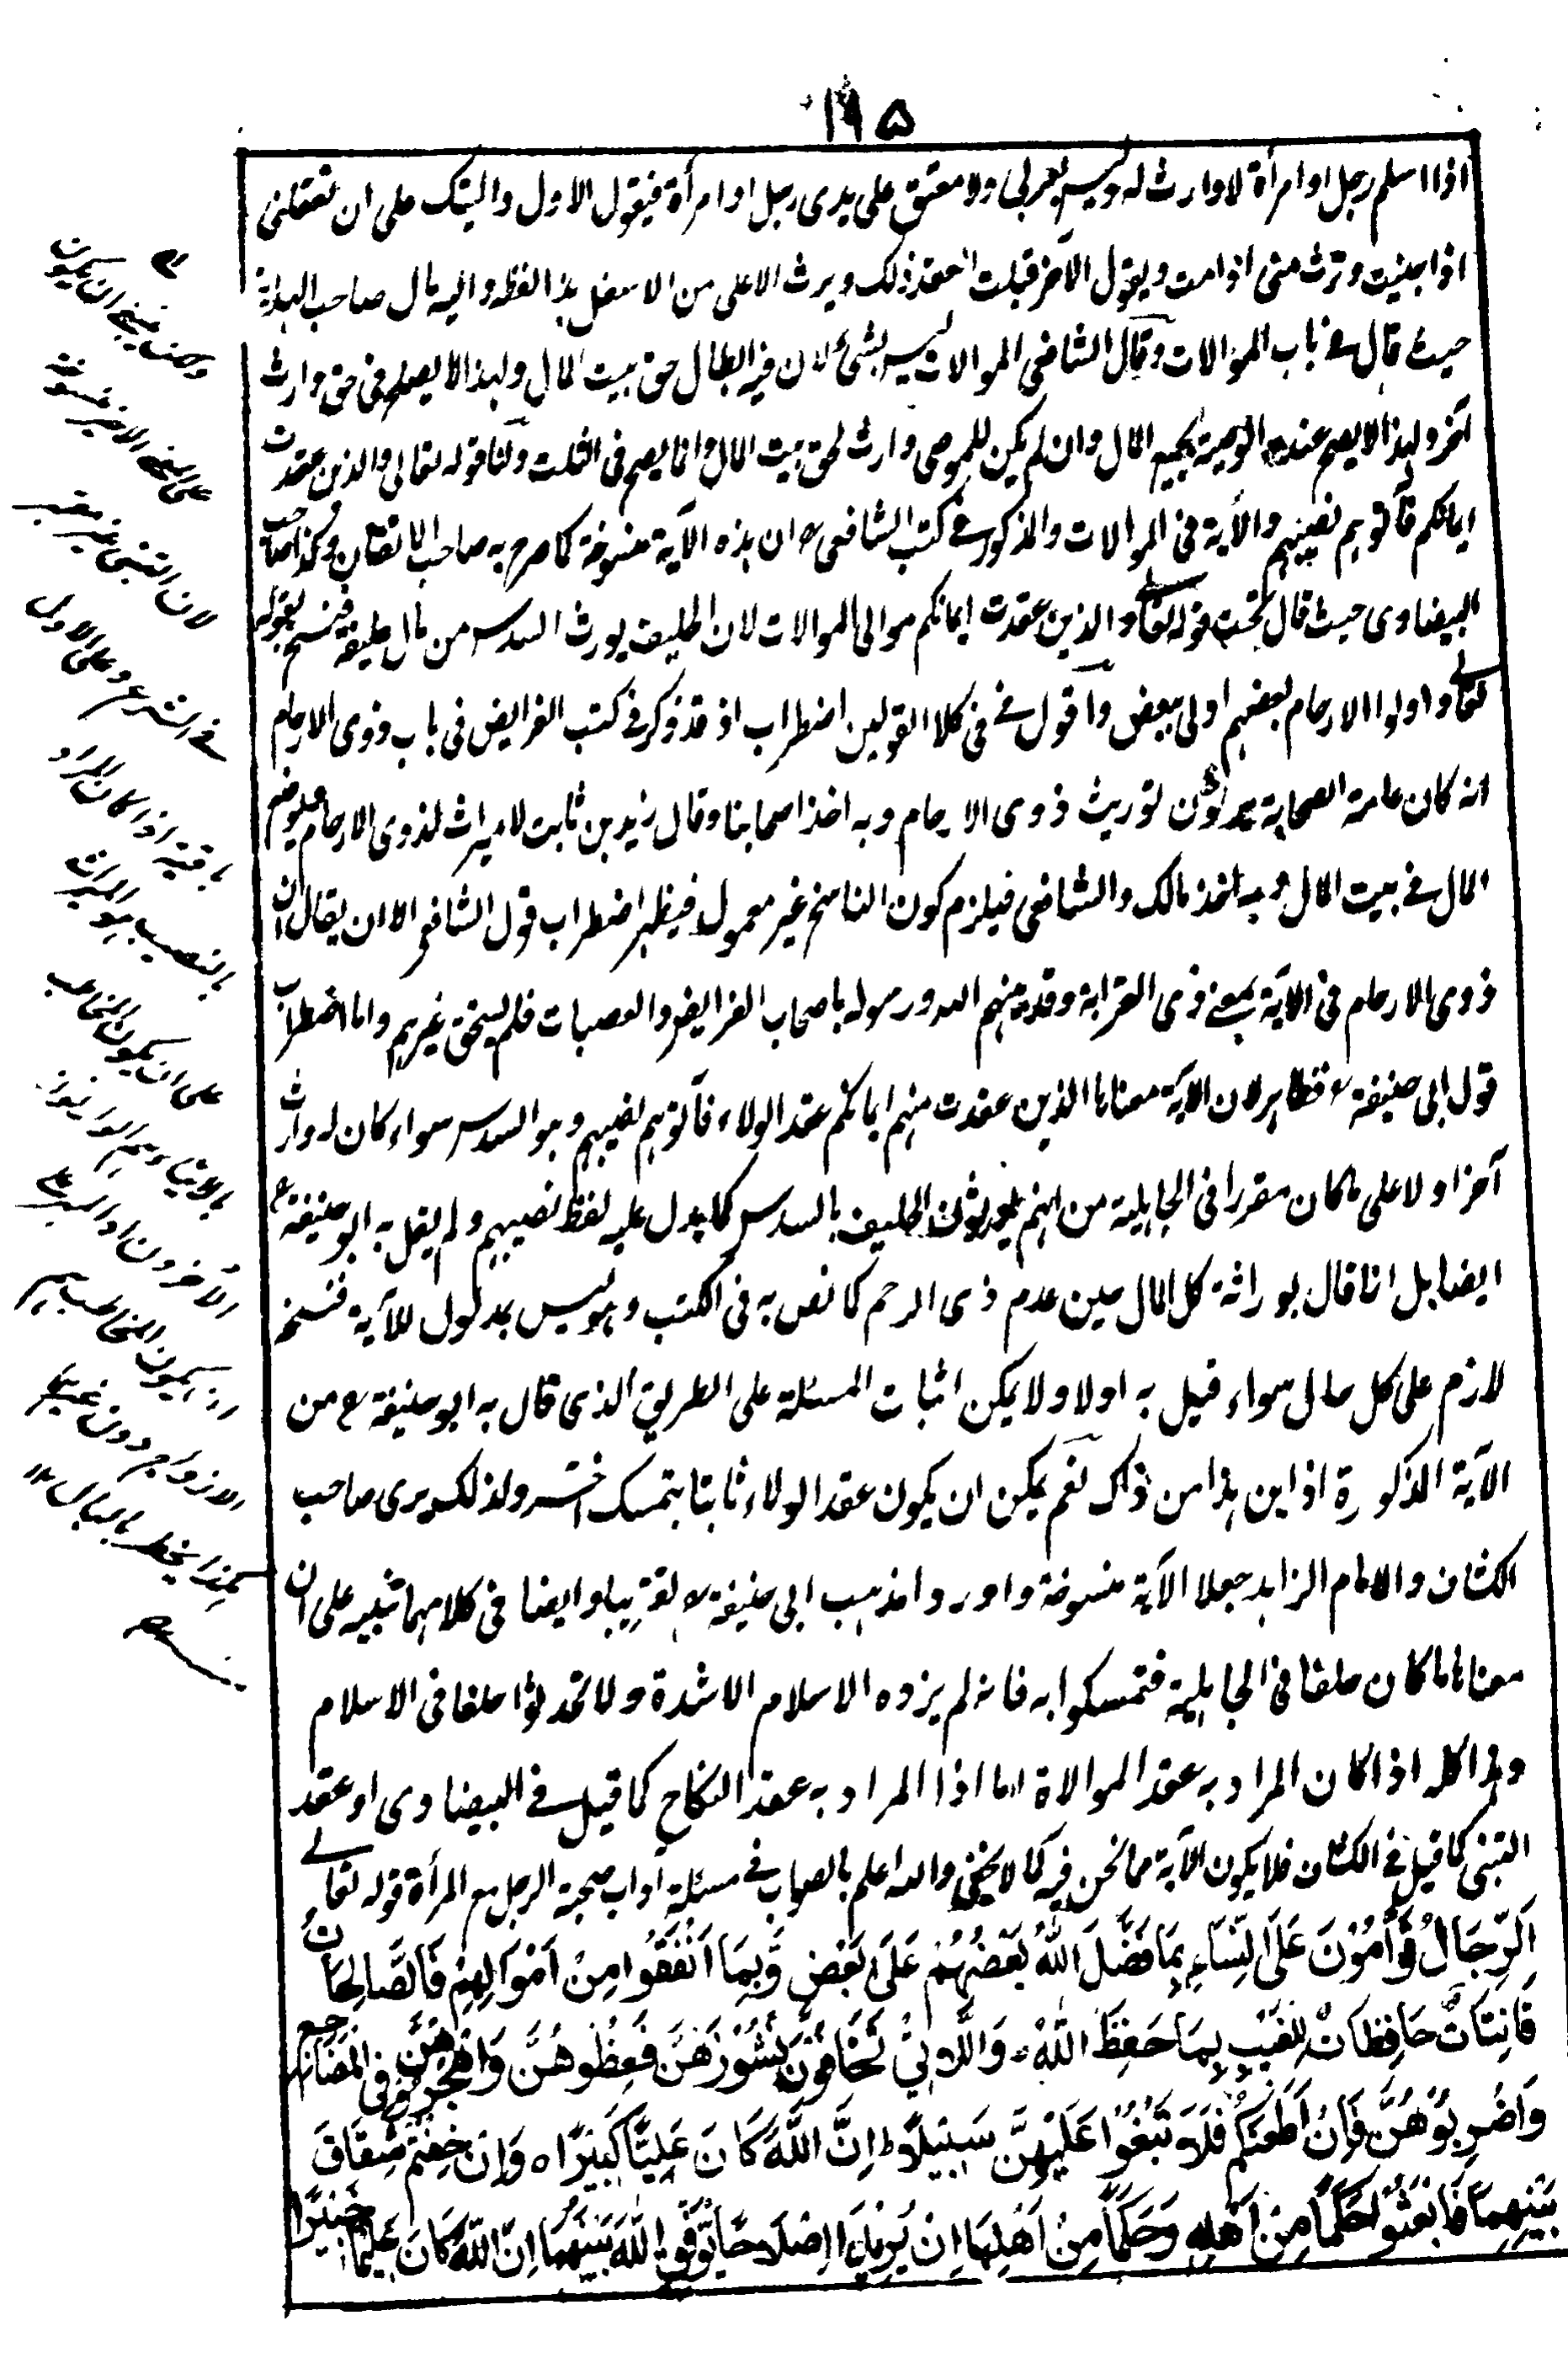 ١٩٥
اذا اسلم رجل او امرأة لا وارث له وليس بعربى ولا معتق على يدى رجل او امرأة فيقول الاول واليتك على ان تعقلنى
اذا جنيت وترث منى اذا مت ويقول الآخر قبلت انعقد ذلك ويرث الاعلى من الاسفل هذا لفظه واليه مال صاحب الهداية
حيث قال فى باب الموالات وقال الشافعى الموالات ليس بشئ لان فيه ابطال حق بيت المال ولهذا لا يصلح فى حق وارث
آخر ولهذا لا يصح عنده الوصية بجميع المال وان لم يكن للموصى وارث لحق بيت المال وانما يصح فى الثلث ولنا قوله تعالى والذين عقدت
ايمانكم فآتوهم نصيبهم والآية فى الموالات والمذكور فى كتب الشافعى ان هذه الآية منسوخة كما صرح به صاحب الاتقان وكذا صاحب
البيضاوى حيث قال تحت قوله تعالى والذين عقدت ايمانكم موالى الموالات لان الحليف يورث السدس من مال حليفه فنسخ بقوله
تعالى واولوا الارحام بعضهم اولى ببعض واقول فى كلا القولين اضطراب اذ قد ذكر فى كتب الفرايض فى باب ذوى الارحام
انه كان عامة الصحابة يرون توريث ذوى الارحام وبه اخذ اصحابنا وقال زيد بن ثابت لا ميراث لذوى الارحام فيوضع
المال فى بيت المال وبه اخذ مالك والشافعى فيلزم كون الناسخ غير معمول فيظهر اضطراب قول الشافعى الا ان يقال ان
ذوى الارحام فى الآية بمعنى ذى القرابة وقد منهم الله ورسوله باصحاب الفرايض والعصبات فلم يستحق غيرهم واما اضطراب
قول ابى حنيفة فظاهر لان الآية معناها الذين عقدت منهم ايمانكم عقد الولاء فآتوهم نصيبهم وهو السدس سواء كان له وارث
آخر اولا على ما كان مقررا فى الجاهلية من انهم يورثون الحليف بالسدس كما يدل عليه لفظ نصيبهم ولم يقل به ابو حنيفة
ايضا بل انما قال بوراثة كل المال حين عدم ذى الرحم كما نص به فى الكتب وهو ليس بمدلول للآية فنسخه
لازم على كل حال سواء قيل به اولا ولا يمكن اثبات المسئلة على الطريق الذى قال به ابو حنيفة من
الآية المذكورة اذ اين هذا من ذاك نعم يمكن ان يكون عقد الولاء ثابتا بتمسك اخر ولذلك يرى صاحب
الكشاف والامام الزاهد جعلا الآية منسوخة واوردا مذهب ابى حنيفة تقريبا وايضا فى كلامهما تنبيه على ان
معناها ما كان حلفا فى الجاهلية فتمسكوا به فانه لم يزده الاسلام الا شدة ولا تحدثوا حلفا فى الاسلام
وهذا كله اذا كان المراد به عقد الموالاة اما اذا المراد به عقد النكاح كما قيل فى البيضاوى او عقد
التبنى كما قيل فى الكشاف فلا يكون الآية مما نحن فيه كما لا يخفى والله اعلم بالصواب فى مسئلة آداب صحبة الرجل مع المرأة قوله تعالى
اَلرِّجَالُ قَوَّامُوْنَ عَلَى النِّسَاءِ بِمَا فَضَّلَ اللهُ بَعْضَهُمْ عَلَى بَعْضٍ وَّبِمَا اَنْفَقُوا مِنْ اَمْوَالِهِمْ فَالصَّالِحَاتُ
قَانِتَاتٌ حَافِظَاتٌ لِلْغَيْبِ بِمَا حَفِظَ اللهُ وَاللَّاتِيْ تَخَافُوْنَ نُشُوْزَهُنَّ فَعِظُوهُنَّ وَاهْجُرُوْهُنَّ فِى الْمَضَاجِعِ
وَاضْرِبُوْهُنَّ فَاِنْ اَطَعْنَكُمْ فَلَا تَبْغُوْا عَلَيْهِنَّ سَبِيْلًا ط اِنَّ اللَّهَ كَانَ عَلِيًّا كَبِيْرًا ه وَاِنْ خِفْتُمْ شِقَاقَ
بَيْنِهِمَا فَابْعَثُوْا حَكَمًا مِنْ اَهْلِهِ وَحَكَمًا مِنْ اَهْلِهَا اِنْ يُرِيْدَا اِصْلَاحًا يُّوَفِّقِ اللهُ بَيْنَهُمَا اِنَّ اللهَ كَانَ عَلِيْمًا خَبِيْرًا
لان التبنى غير معتبر
فى الشرع وعلى الاول
باقية اذا كان المراد
بالنصيب هو الميراث
على ان يكون المخاطب
الازواج دون غيرها
هكذا يخطر بالبال ١٢